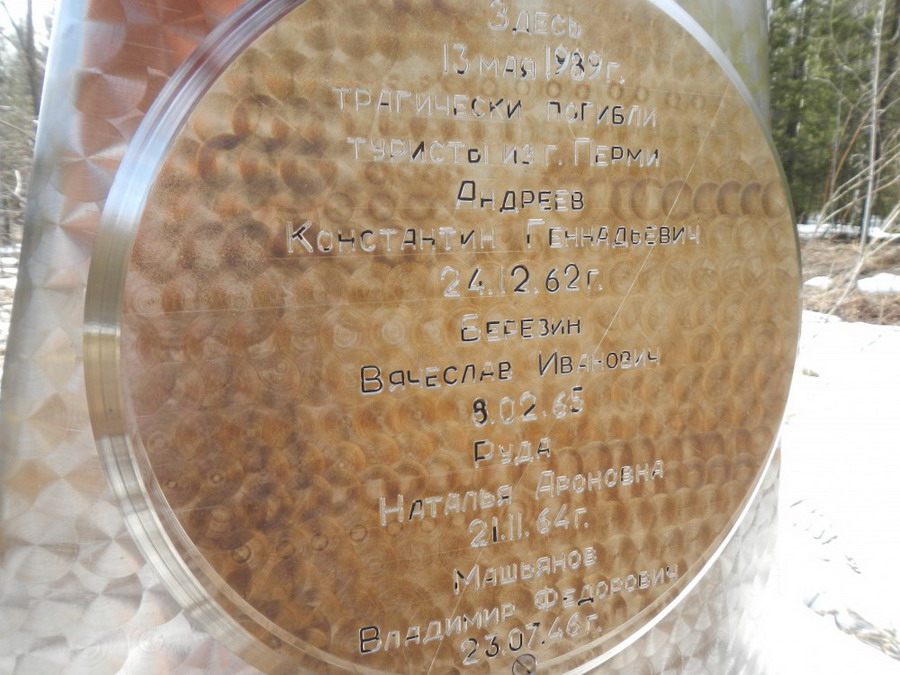 Здесь
13 мая 1989г.
трагически погибли
туристы из г. Перми
Андреев
Константин Геннадьевич
24.12.62г.
Березин
Вячеслав Иванович
8.02.65
Руда
Наталья Дроновна
21.11.64г.
Машьянов
Владимир Федорович
23.07.46г.